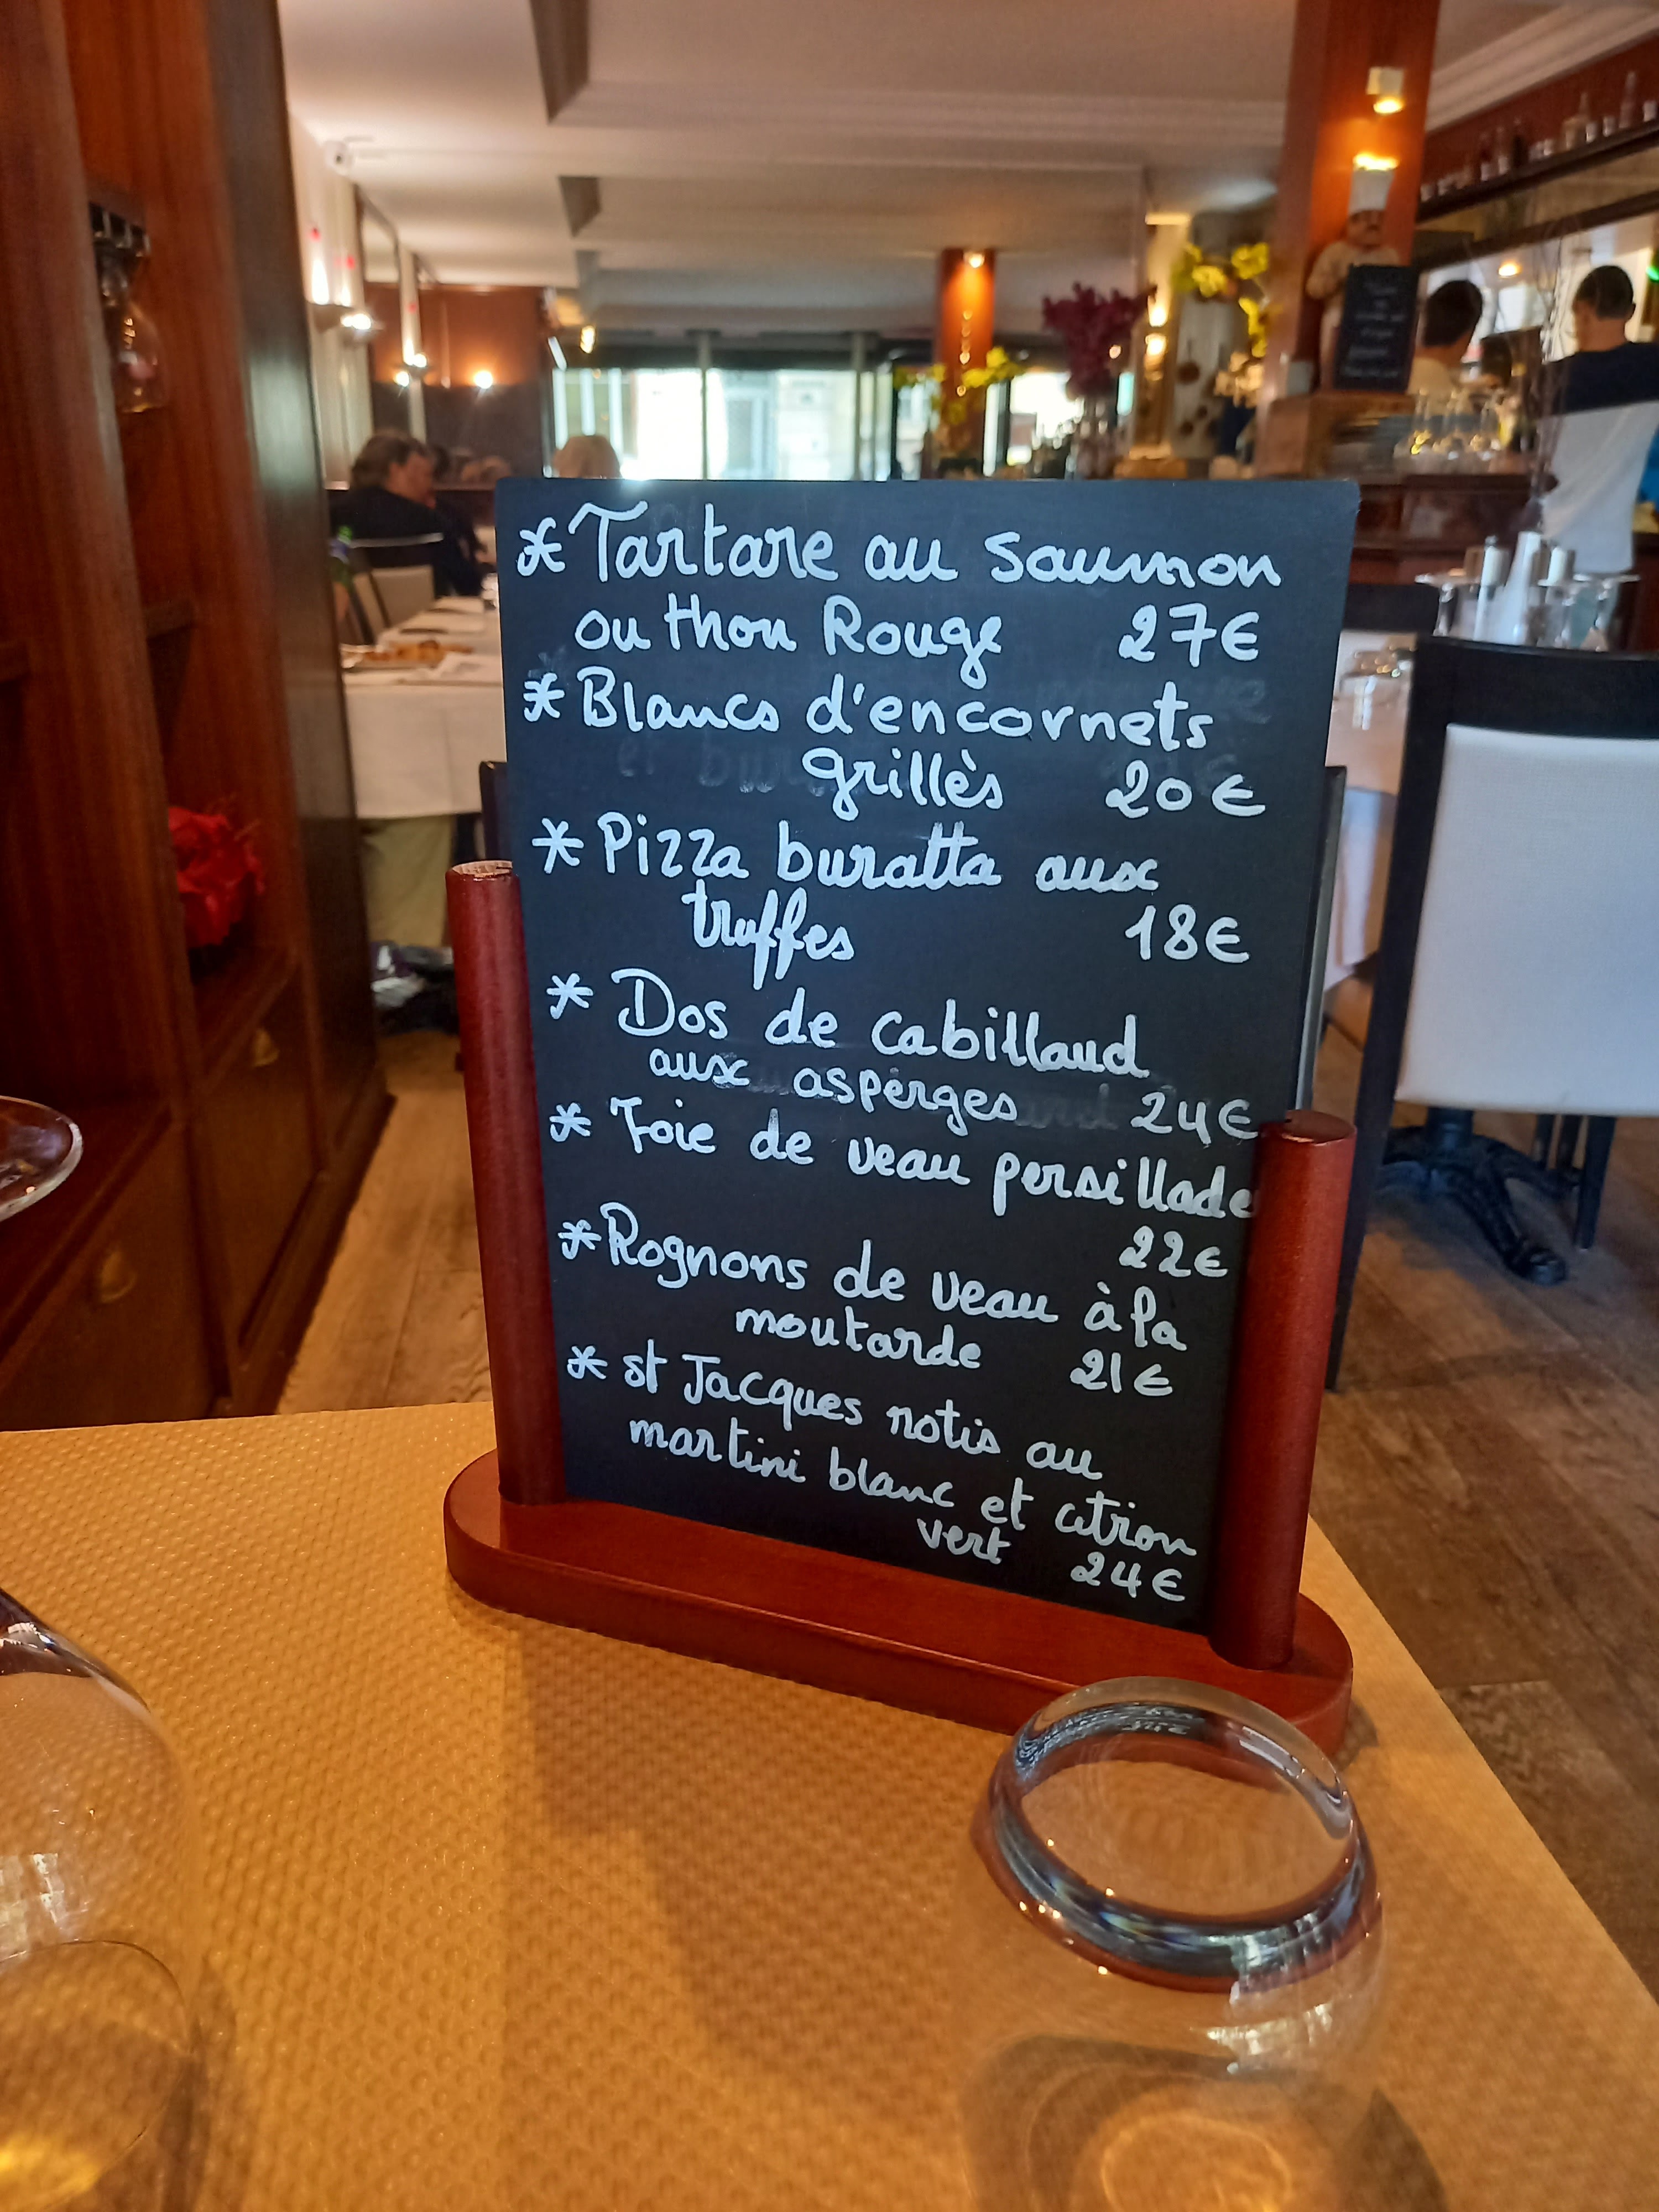 * Tartare au saumon
ou thon Rouge 27€
* Blancs d'encornets
grillès 20€
* Pizza buratta aux
truffes 18€
* Dos de cabillaud
aux asperges 24€
* Foie de veau persillade
22€
* Rognons de veau à la
moutarde 21€
* st Jacques rotis au
martini blanc et citron
vert 24€